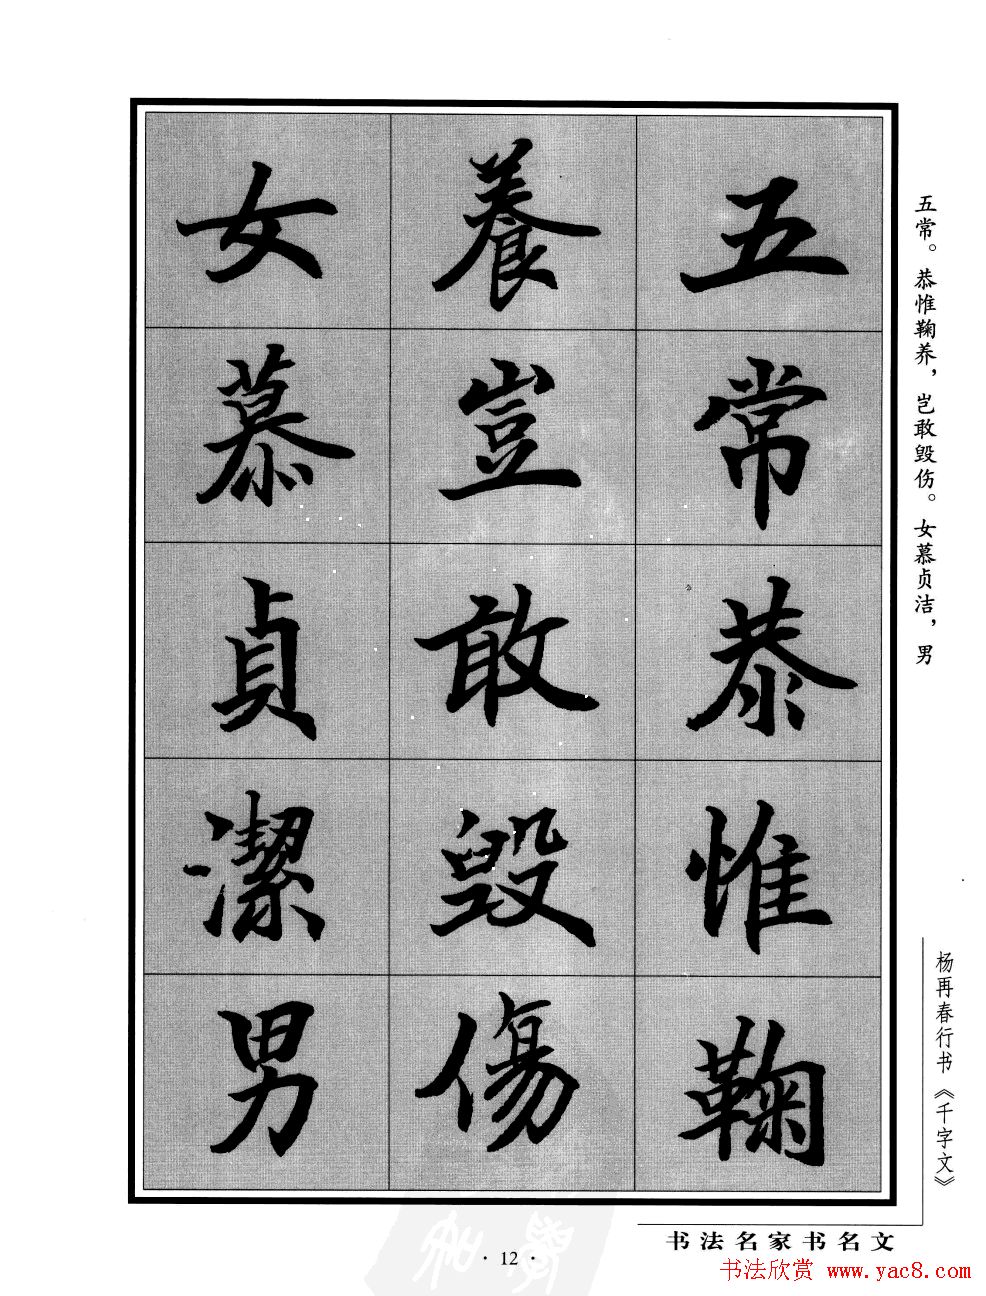 五常恭惟鞠
養豈敢毀傷
女慕貞潔男
五常。恭惟鞠养，岂敢毁伤。女慕贞洁，男
杨再春行书《千字文》
书法名家书名文
·12·
书法欣赏 www.yac8.com